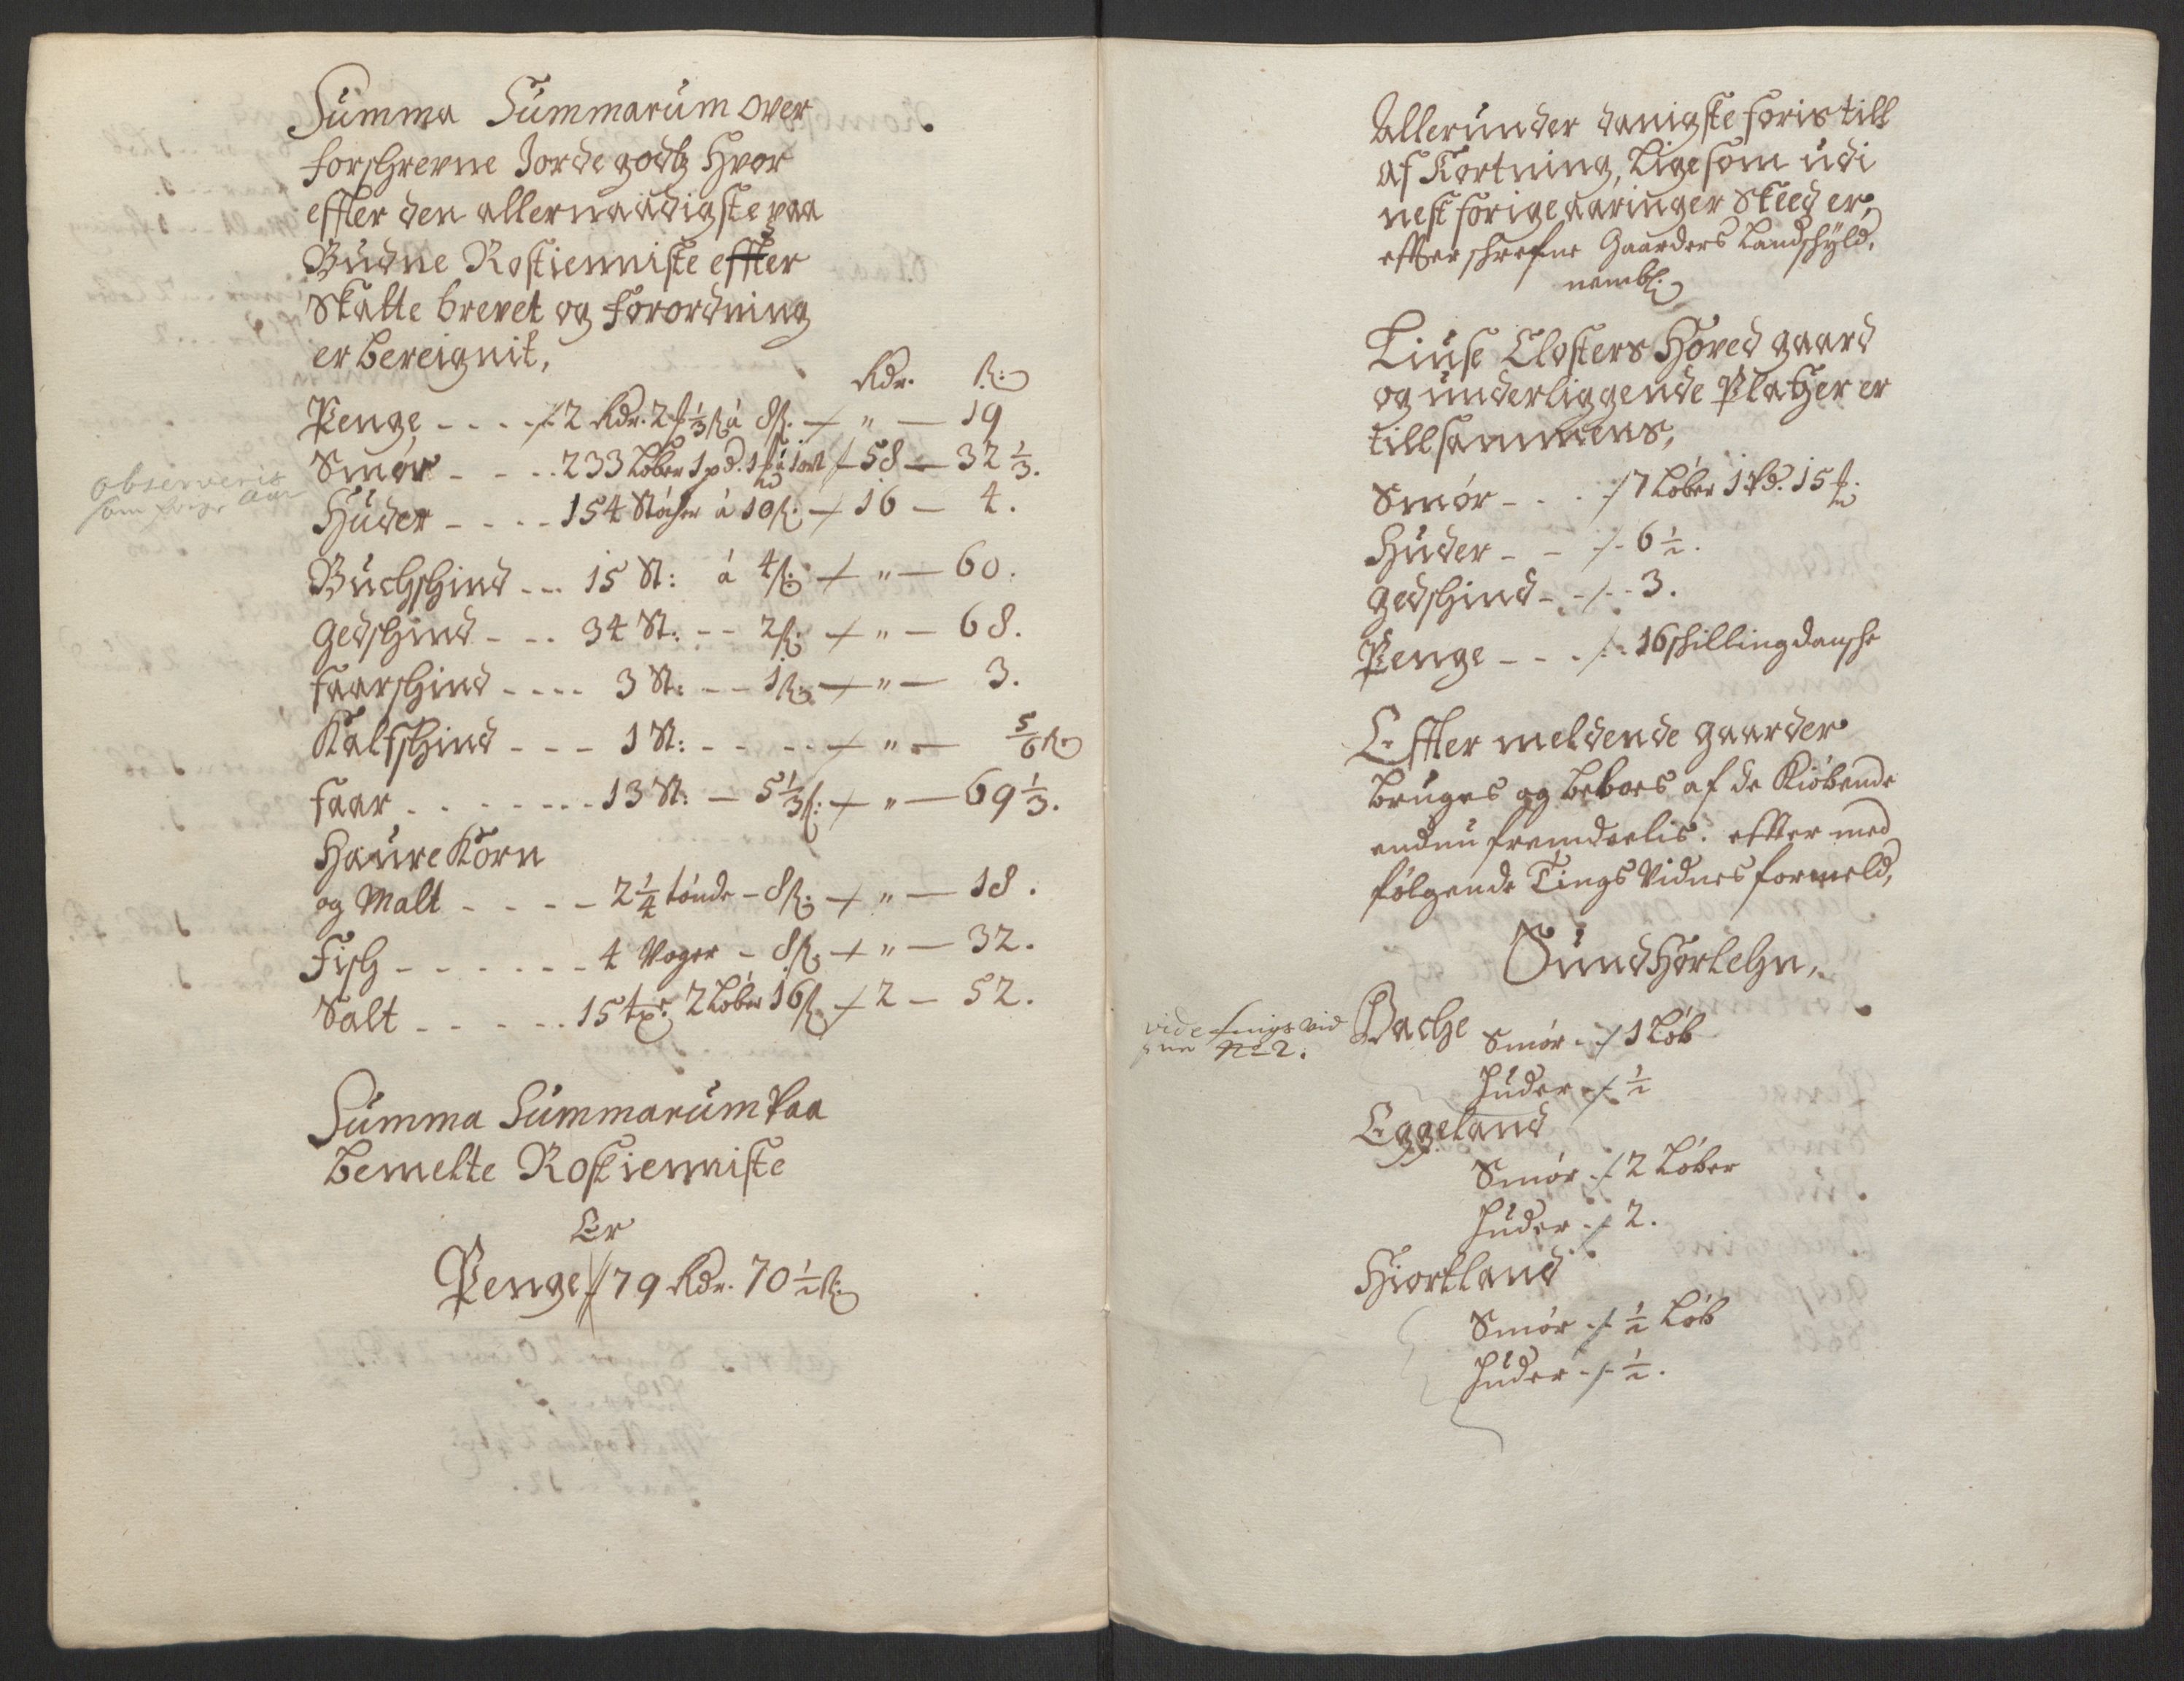 Summa Summarum over
forschrevne Jorde godtz Hvor
effter den allernaadigste paa
Budne Rostienniste effter
Skatte brevet og forordning
er bereignit,
Rdr. ß:
Penge, - - - - ⁒ 2 Rdr. 2 ß à 8ß. ⁒ " — 19
Smör - - - . . 233 Löber 1 pd. 1 à 1 ort ⁒ 58 — 32 1/3.
observeris
som forige aar
Huder - - - - 154 Stöcher à 10ß. ⁒ 16 — 4.
Buchschind - - - 15 St: à 4ß: ⁒ " — 60.
Gedschind - - - 34 St: - - 2ß. ⁒ " — 68.
faarschind - - - - 3 St: - - 1ß. ⁒ " — 3.
Kalfschind - - - 1 St: - - - - - ⁒ " — 5/6 ß.
faar . - - - - - - . 13 St: — 5 1/3 ß: ⁒ " — 69 1/3.
Haure Korn
og Malt - - - - - 2 1/4 tönde - 8ß. ⁒ " — 18.
Fisch - - - - - - - 4 Voger - 8ß. ⁒ " — 32.
Salt - - - - - . . 15 tr. 2 Löber 16ß. ⁒ 2 — 52.
Summa Summarum Paa
bemelte Rostienniste
Er
Penge ⁒ 79 Rdr. 70 1/2 ß.
Allerunder danigste foris till
af Kortning, Ligesom udi
nest forige aaringer Skeed er,
effterschrefne Gaarders Landschyld,
nembl:
Liuse Closters Hoved gaard
og underliggende Platzer er
tillsammens,
Smör - . . - ⁒ 7 Löber 1 Pd. 15
Huder - - ⁒ 6 1/2.
Gedschind - . - ⁒ - 3.
Penge - - - . ⁒ . 16 schilling dansche
Effter meldende gaarder
bruges og beboes af de Kiöbende
endnu fremdeelis. effter med
fölgende Tings Vidnes formeld,
Sundhorlehn,
vide tings vid
sne No 2.
Bache Smör . ⁒ 1 Löb
Huder . ⁒ 1/2
Eggeland
Smör . ⁒ 2 Löber
Huder . ⁒ 2.
Hiortland
Smör . ⁒ 1/2 Löb
Huder - ⁒ 1/2.